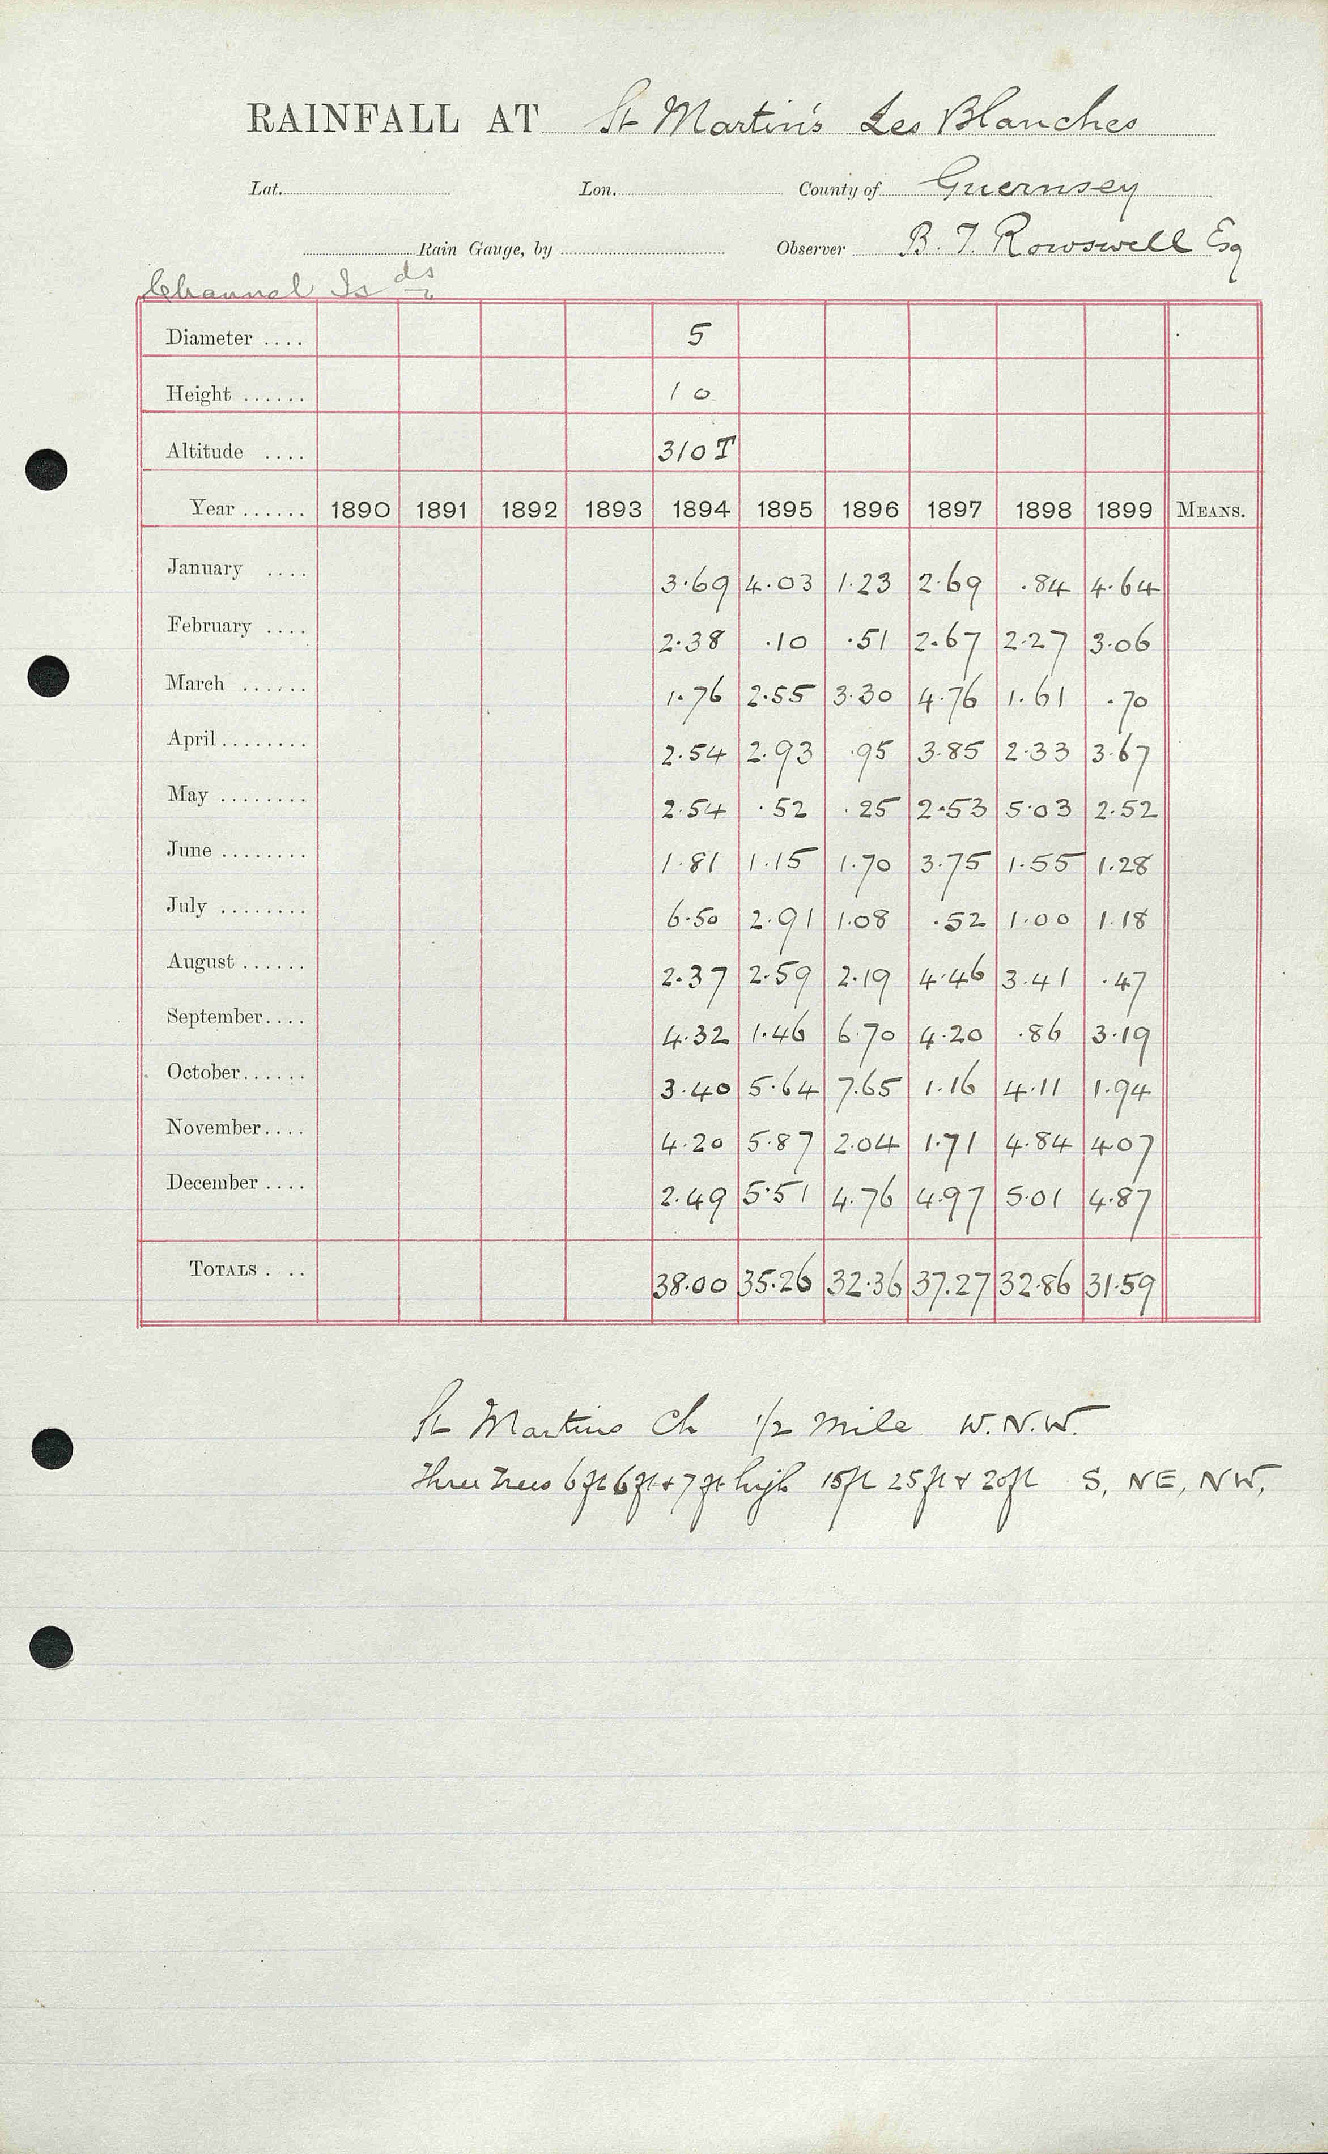 RAINFALL AT St Martin's Les Blanches
Lat. Lon. County of Guernsey
Rain Gauge, by Observer B. T. Rowswell Esq
Channel Is ds
Diameter .... 5
Height ...... 1 0
Altitude .... 310 T
Year ...... 1890 1891 1892 1893 1894 1895 1896 1897 1898 1899 MEANS.
January .... 3.69 4.03 1.23 2.69 .84 4.64
February .... 2.38 .10 .51 2.67 2.27 3.06
March ...... 1.76 2.55 3.30 4.76 1.61 .70
April ........ 2.54 2.93 .95 3.85 2.33 3.67
May ........ 2.54 .52 .25 2.53 5.03 2.52
June ........ 1.81 1.15 1.70 3.75 1.55 1.28
July ........ 6.50 2.91 1.08 .52 1.00 1.18
August ...... 2.37 2.59 2.19 4.46 3.41 .47
September .... 4.32 1.46 6.70 4.20 .86 3.19
October ...... 3.40 5.64 7.65 1.16 4.11 1.94
November .... 4.20 5.87 2.04 1.71 4.84 4.07
December .... 2.49 5.51 4.76 4.97 5.01 4.87
TOTALS . .. 38.00 35.26 32.36 37.27 32.86 31.59
St Martins Ch 1/2 mile W.N.W.
Three Trees 6 ft 6 ft & 7 ft high 15 ft 25 ft & 20 ft S, NE, NW,